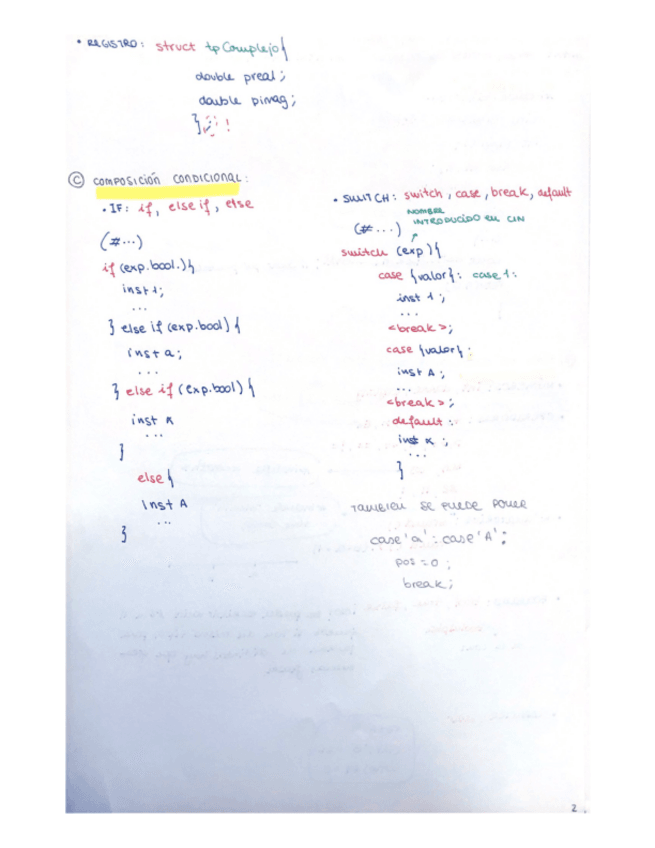 • REGISTRO: struct tpComplejo{
double preal;
double pimag;
};!
Ⓒ COMPOSICIÓN CONDICIONAL:
• IF: if, else if, else
(#...)
if (exp.bool.){
inst 1;
...
} else if (exp.bool) {
inst a;
...
} else if (exp.bool) {
inst
...
}
else{
inst A
...
}
• SWITCH: switch, case, break, default
NOMBRE
INTRODUCIDO EN CIN
(#...)
switch (exp){
case {valor}: case 1:
inst 1;
...
<break>;
case {valor}:
inst A;
...
<break>;
default:
inst ;
...
}
TAMBIEN SE PUEDE PONER
case 'a': case 'A':
pos = 0;
break;
2